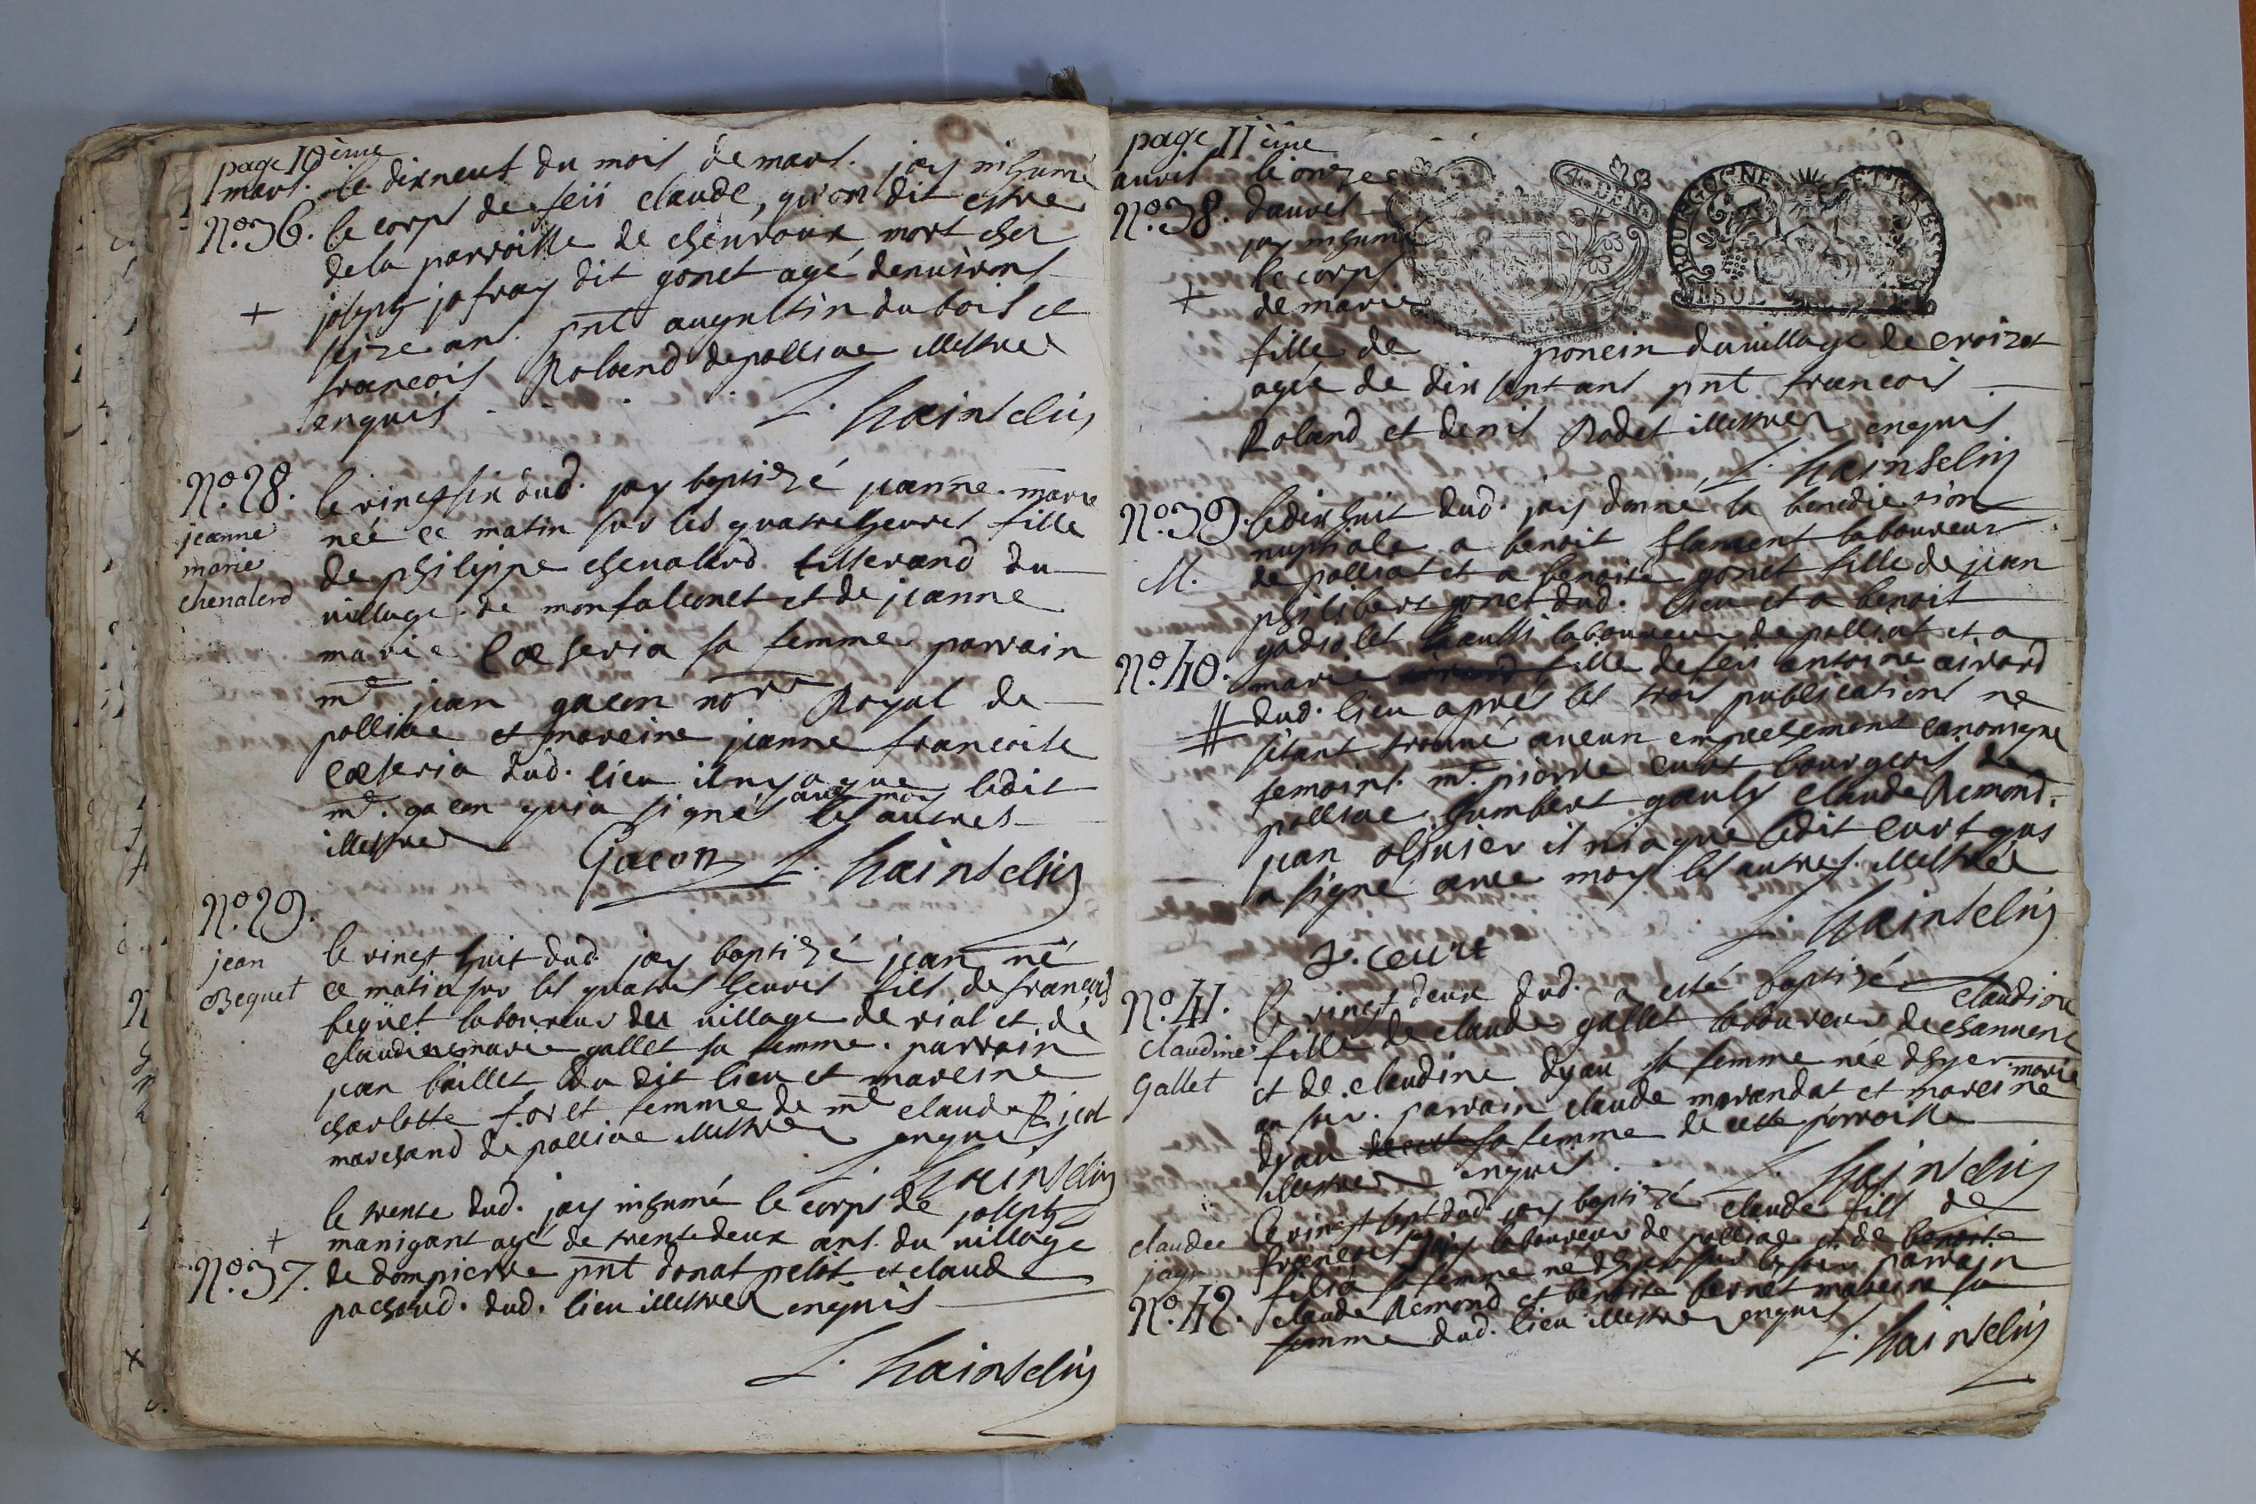 page 10ème
mars. le dixneuf du mois de mars. jay inhumé
N.º 36. le corps de feü claude, qu'on dit estre
de la parroisse de chevroux mort chez
+ joseph jafray dit gonet agé denuirons
seize ans. pnt augustin du bois et
francois Roland de polliac illettres
enquis
L. hainselin
N.º 28. le vingt six dud. jay baptizé jeanne. marie
jeanne marie chenalerd
née ce matin sur les quatre heures fille
de philippe chenalerd tisserand du
village de monfalconet et de jeanne
marie sa femme parrain
me jean gacon nore Royal de
polliac et mareine jeanne francoise
dud. lieu il ny a que ledit
me. gacon qui a signé avec moy les autres
illettres
Gacon L. hainselin
N.º 29.
jean Bequet
le vingt huit dud. jay baptizé jean né
ce matin sur les quatres heures fils de francois
bequet laboureur du village de vial et de
claudine marie gallet sa femme. parrain
jean baillet du dit lieu et mareine
charlotte foret femme de me claude
marchand de polliac illettres enquis
L. hainselin
le trente dud. jay inhumé le corps de joseph
+ manigant agé de trente deux ans. du village
N.º 37. de dompierre pnt donat pelot et claude
pachoud. dud. lieu illettres enquis
L. hainselin
page 11ème
avril le onze
N.º 38. davril
jay inhumé
le corps
+ de marie
fille de poncin du village de croizet
agée de dix sept ans pnt francois
Roland et denis Rodet illettres enquis
L. hainselin
N.º 39. le dix huit dud. jay donné la benediction
nuptiale a benoit laboureur
M. de polliat et a benoite gonet fille de jean
philibert gonet dud. lieu et a benoit
gadiollet aussi laboureur de polliat et a
N.º 40. marie fille de feü antoine airard
dud. lieu apres les trois publications ne
sétant trouvé aucun empechement canonique
temoins. me. pierre curt bourgeois de
polliac humbert claude Remond.
jean olivier il n'i a que ledit curt qui
a signé avec moy les autres illettres
L. hainselin
P. ceurt
N.º 41. le vingt deux dud. a esté baptizé claudine
claudine Gallet
fille de claude gallet laboureur de
et de claudine dyau sa femme née dhyer
au soir. parrain claude marandat et mareine marie
dyau sa femme de cette parroisse
illettres enquis.
L. hainselin
le vingt sept dud. jay baptizé claude fils de
claude jayr
francois jayr laboureur de polliac et de benoite
sa femme né dhyer sur le soir parrain
N.º 42. claude Remond et benoite bernet mareine sa
femme dud. lieu illettres enquis
L. hainselin